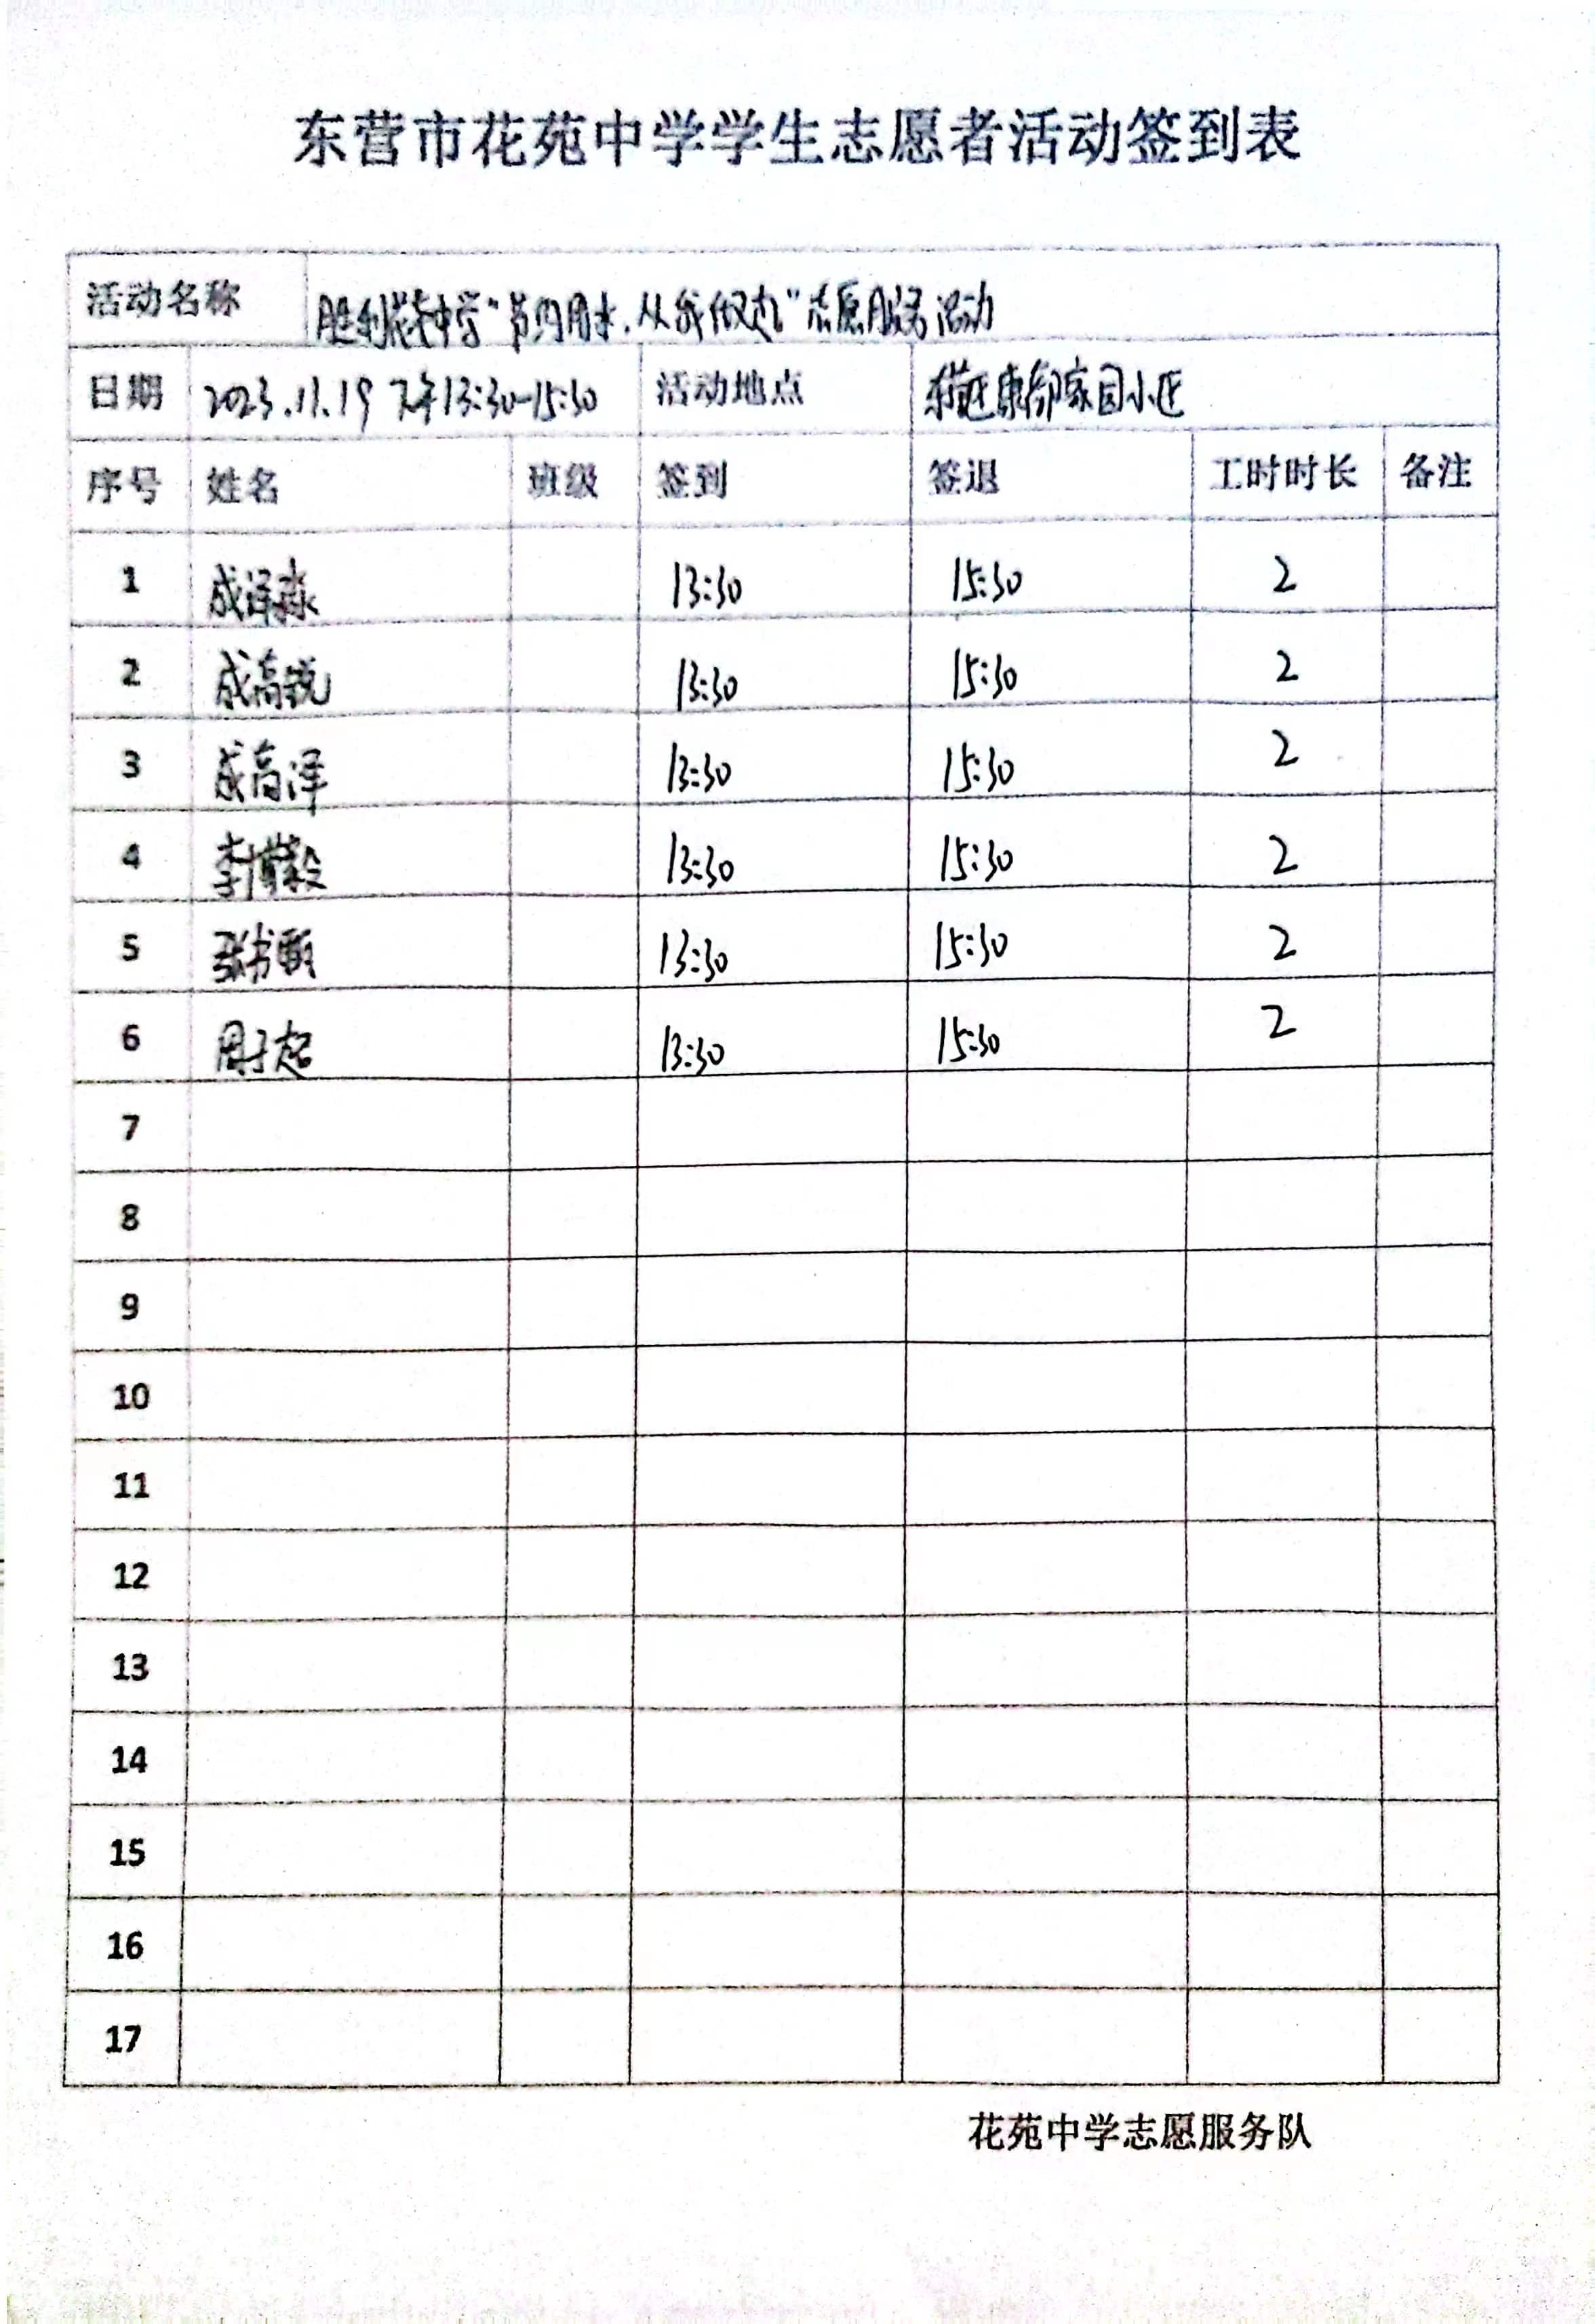 东营市花苑中学学生志愿者活动签到表
活动名称 胜利花苑中学"节约用水,从我做起"志愿服务活动
日期 2023.11.19 下午13:30-15:30 活动地点 东营区康郁家园小区
序号 姓名 班级 签到 签退 工时时长 备注
1 成泽淼 13:30 15:30 2
2 成高锐 13:30 15:30 2
3 成高泽 13:30 15:30 2
4 李 13:30 15:30 2
5 张书 13:30 15:30 2
6 周子超 13:30 15:30 2
7
8
9
10
11
12
13
14
15
16
17
花苑中学志愿服务队